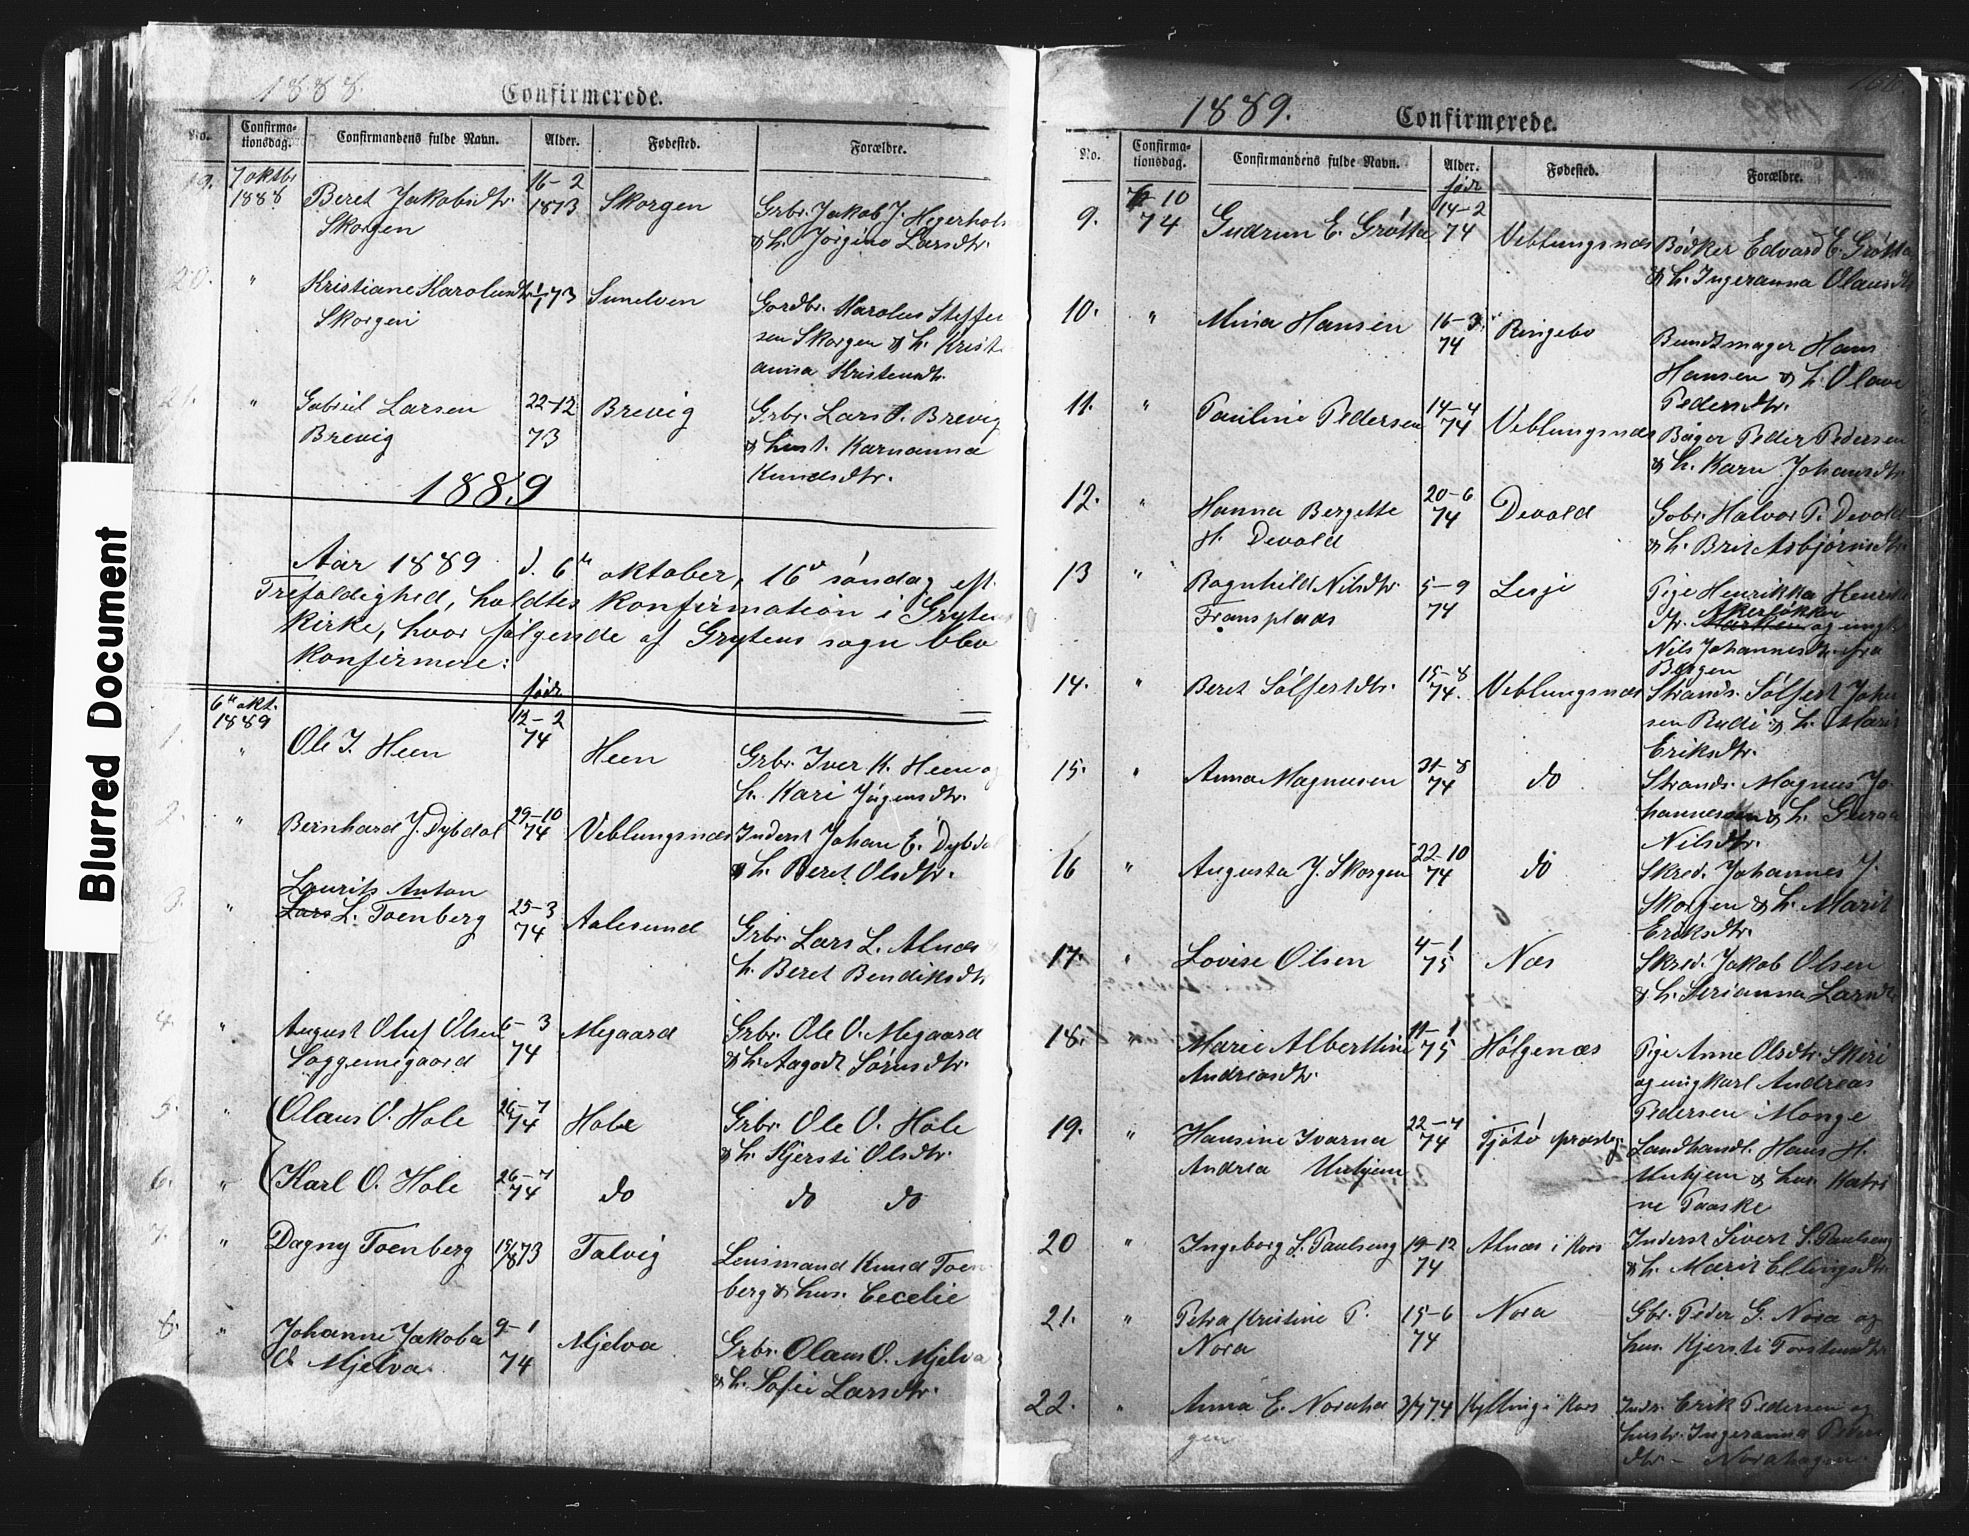 Blurred Document
1888.
Confirmerede.
No.
Confirma-
tionsdag.
Confirmandens fulde Navn.
Alder.
Fødested.
Forældre.
19.
7 oktbr
1888
Beret Jakobsdtr.
Skorgen
16-2
1873
Skorgen
Grbr. Jakob J. Hegerholm
& h. Jørgine Larsdtr.
20.
"
Kristiane Karolusdtr.
Skorgen
73
Sunelven
Gordbr. Karolus Steffen
sen Skorgen & h. Krist
anna Kristensdtr.
21.
"
Gabriel Larsen
Brevig
22-12
73
Brevig
Grbr. Lars O. Brevig
& hust. Karnanna
Knudsdtr.
1889
Aar 1889 d. 6te oktober, 16de søndag eft.
Trefoldighed, holdtes konfirmation i Grytens
kirke, hvor følgende af Grytens sogn blev
konfirmere:
født
1.
6te okt.
1889
"
Ole I. Heen
12-2
74
Heen
Grbr. Iver K. Heen og
h. Kari Jørgensdtr.
2.
"
Bernhard J. Dybdal
29-10
74
Veblungsnæs
Inderst Johan E. Dybdal
& h. Beret Olsdtr.
3.
"
Laurits Anton
Lars L. Toenberg
25-3
74
Aalesund
Grbr. Lars L. Alnæs
h. Beret Bendiksdtr
4.
"
August Oluf Olsen
Soggemsgaard
6-3
74
Megaard
Grbr. Ole O. Megaard
& h. Aagodt Sørensdtr.
5.
"
Olaus O. Hole
26-7
74
Hole
Grbr. Ole O. Hole
& h. Kjersti Olsdtr.
6.
"
Karl O. Hole
26-7
74
do
do do
7.
"
Dagny Toenberg
19/8 73
Talvig
Lensmand Knud Toen
berg & hus. Cecelie
8.
"
Johanne Jakoba
O. Mjelva
9-1
74
Mjelva
Grbr. Olaus O. Mjelva
& h. Sofie Larsdtr.
1889.
Confirmerede.
No.
Confirma-
tionsdag.
Confirmandens fulde Navn.
Alder.
født
Fødested.
Forældre.
9.
10
74
Gudrun E. Grøtta
14-2
74
Veblungsnæs
Bødker Edvard E. Grøtta
& h. Ingeranna Olausdtr
10.
"
Mina Hansen
16-3
74
Ringebo
Bundtmager Hans
Hansen & h. Olave
Pedersdtr.
11.
"
Pauline Pedersen
14-4
74
Veblungsnæs
Bager Peder Pedersen
& h. Karn Johansdtr.
12.
"
Hanna Bergette
H. Devold
20-6
74
Devold
Gobr. Halvor P. Devold
& h. Brit Asbjørnsdtr.
13
"
Ragnhild Nilsdtr.
Fransplads
5-9
74
Lesje
Pige Henrikka Henriks
dtr. Akerløkken
Marken og ungk.
Nils Johannesdtr. fra
Bergen
14.
"
Beret Sølfestdtr.
15-8
74.
Veblungsnæs
Strands. Sølfest Johan
sen Budi & h. Marit
Eriksdtr.
15.
"
Anna Magnusen
31-8
74
do
Strands. Magnus Jo
hannesen & h. Guraa
Nilsdtr.
16
"
Augusta J. Skorgen
22-10
74
do
Skred. Johannes J.
Skorgen & h. Marit
Eriksdtr.
17.
"
Lovise Olsen
4-1
75
Næs
Skred. Jakob Olsen
& h. Serianna Larsdtr
18.
"
Marie Alberttine
Andreasdtr.
11-1
75
Hølgenæs
Pige Anne Olsdtr. Skiri
og ungkarl Andreas
Pedersen Monge
19.
"
Hansine Ivarna
Andrea Unhjem
22-4
74
Tjøtø præstegj.
Landhandl. Hans H.
Unhjem & hus. Katri
ne Paaske
20
"
Ingeborg S. Paulseng
19-12
74
Alnæs i Kors
Inderst Sivert S. Paulseng
& h. Marit Ellingsdtr.
21.
"
Petra Kristine P.
Nora
15-6
74
Nora
Gbr. Peder G. Nora og
hus. Kjersti Torstensdtr.
22.
"
Anna E. Noraha
gen
3/7 74
Kylling i Kors
Indr. Erik Pedersen og
hustr. Ingeranna Peders
dtr. - Norahagen.